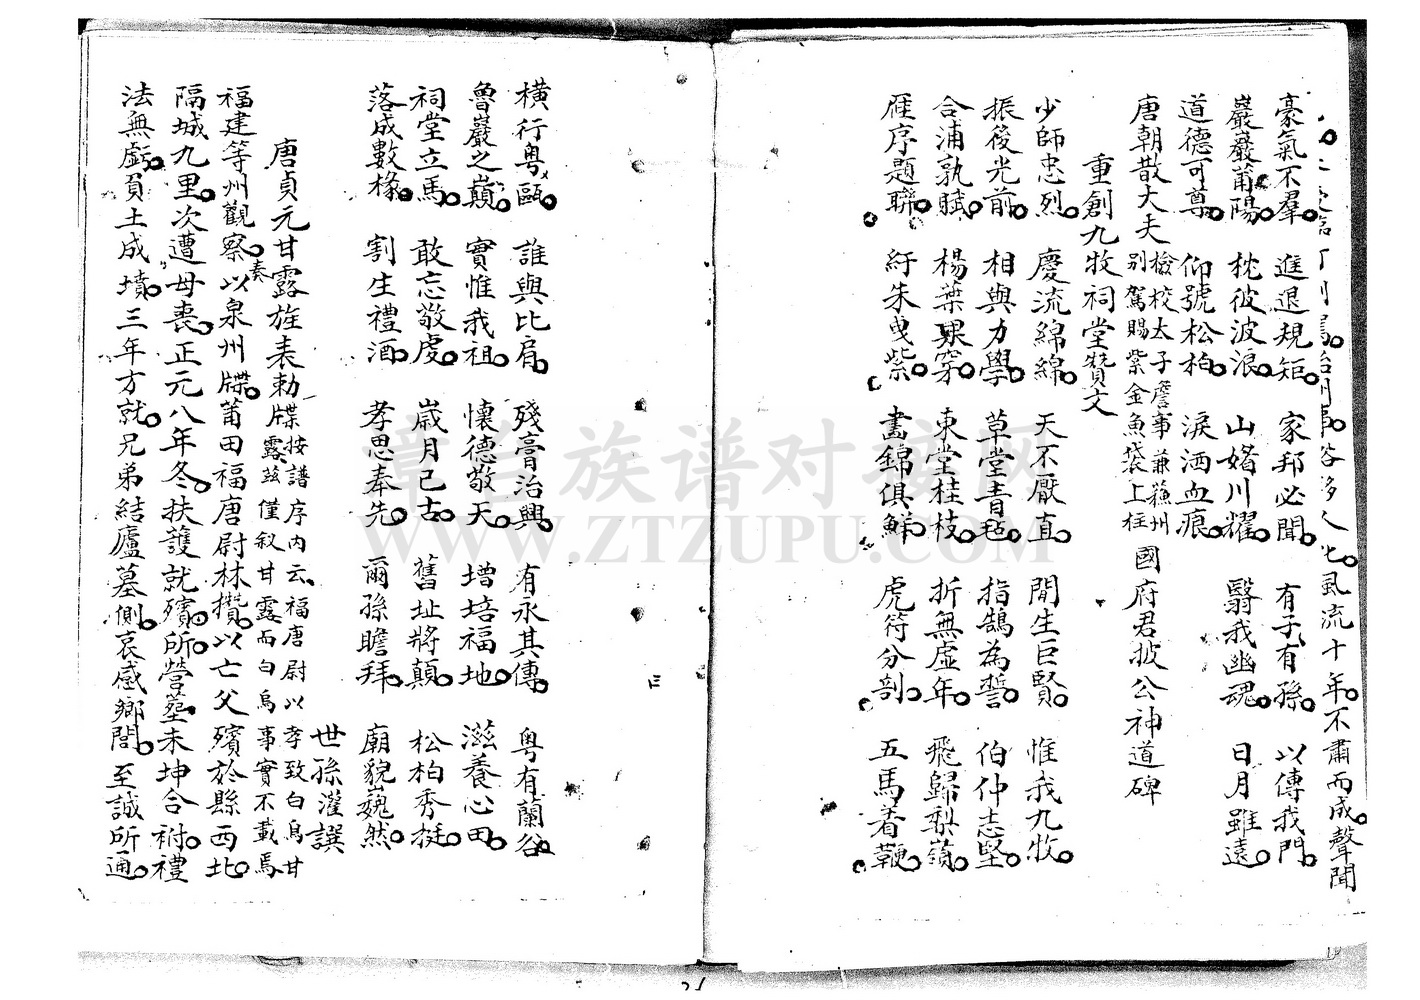 風流十年。不肅而成。聲聞
豪氣不羣。進退規矩。家邦必聞。有子有孫。以傳我門。
巖巖莆陽。枕彼波浪。山媎川耀。翳我幽魂。日月雖遠。
道德可尊。仰號松柏。淚洒血痕。
唐朝散大夫檢校太子詹事兼蘓州
別駕賜紫金魚袋上柱國府君披公神道碑
重創九牧祠堂贊文
少師忠烈。慶流綿綿。天不厭直。間生巨賢。惟我九牧。
振後光前。相與力學。草堂青毡。指鵠為誓。伯仲志堅。
合浦孰賦。楊葉果穿。東堂桂枝。折無虛年。飛歸梨嶺。
雁序題聯。紆朱曳紫。畫錦俱鮮。虎符分剖。五馬着鞭。
橫行粵甌。誰與比肩。殘膏治興。有永其傳。粵有蘭谷。
魯巖之巔。實惟我祖。懷德敬天。增培福地。滋養心田。
祠堂立馬。敢忘敬虔。歲月已古。舊址將顛。松柏秀挺。
落成數椽。割生禮酒。孝思奉先。爾孫瞻拜。廟貌巍然。
世孫灌譔
唐貞元甘露旌表勅牒按譜序內云、福唐尉以孝致白烏甘
露茲僅叙甘露而白烏事實不載馬
福建等州觀察。奏以泉州牒。莆田福唐尉林攢。以亡父殯於縣西北。
隔城九里。次遭母喪。正元八年冬。扶護就殯。所。營墓未坤合祔。禮
法無虧。負土成墳。三年方就。兄弟結廬墓側。哀感鄉閭。至誠所通。
章台族谱对接网
WWW.ZTZUPU.COM